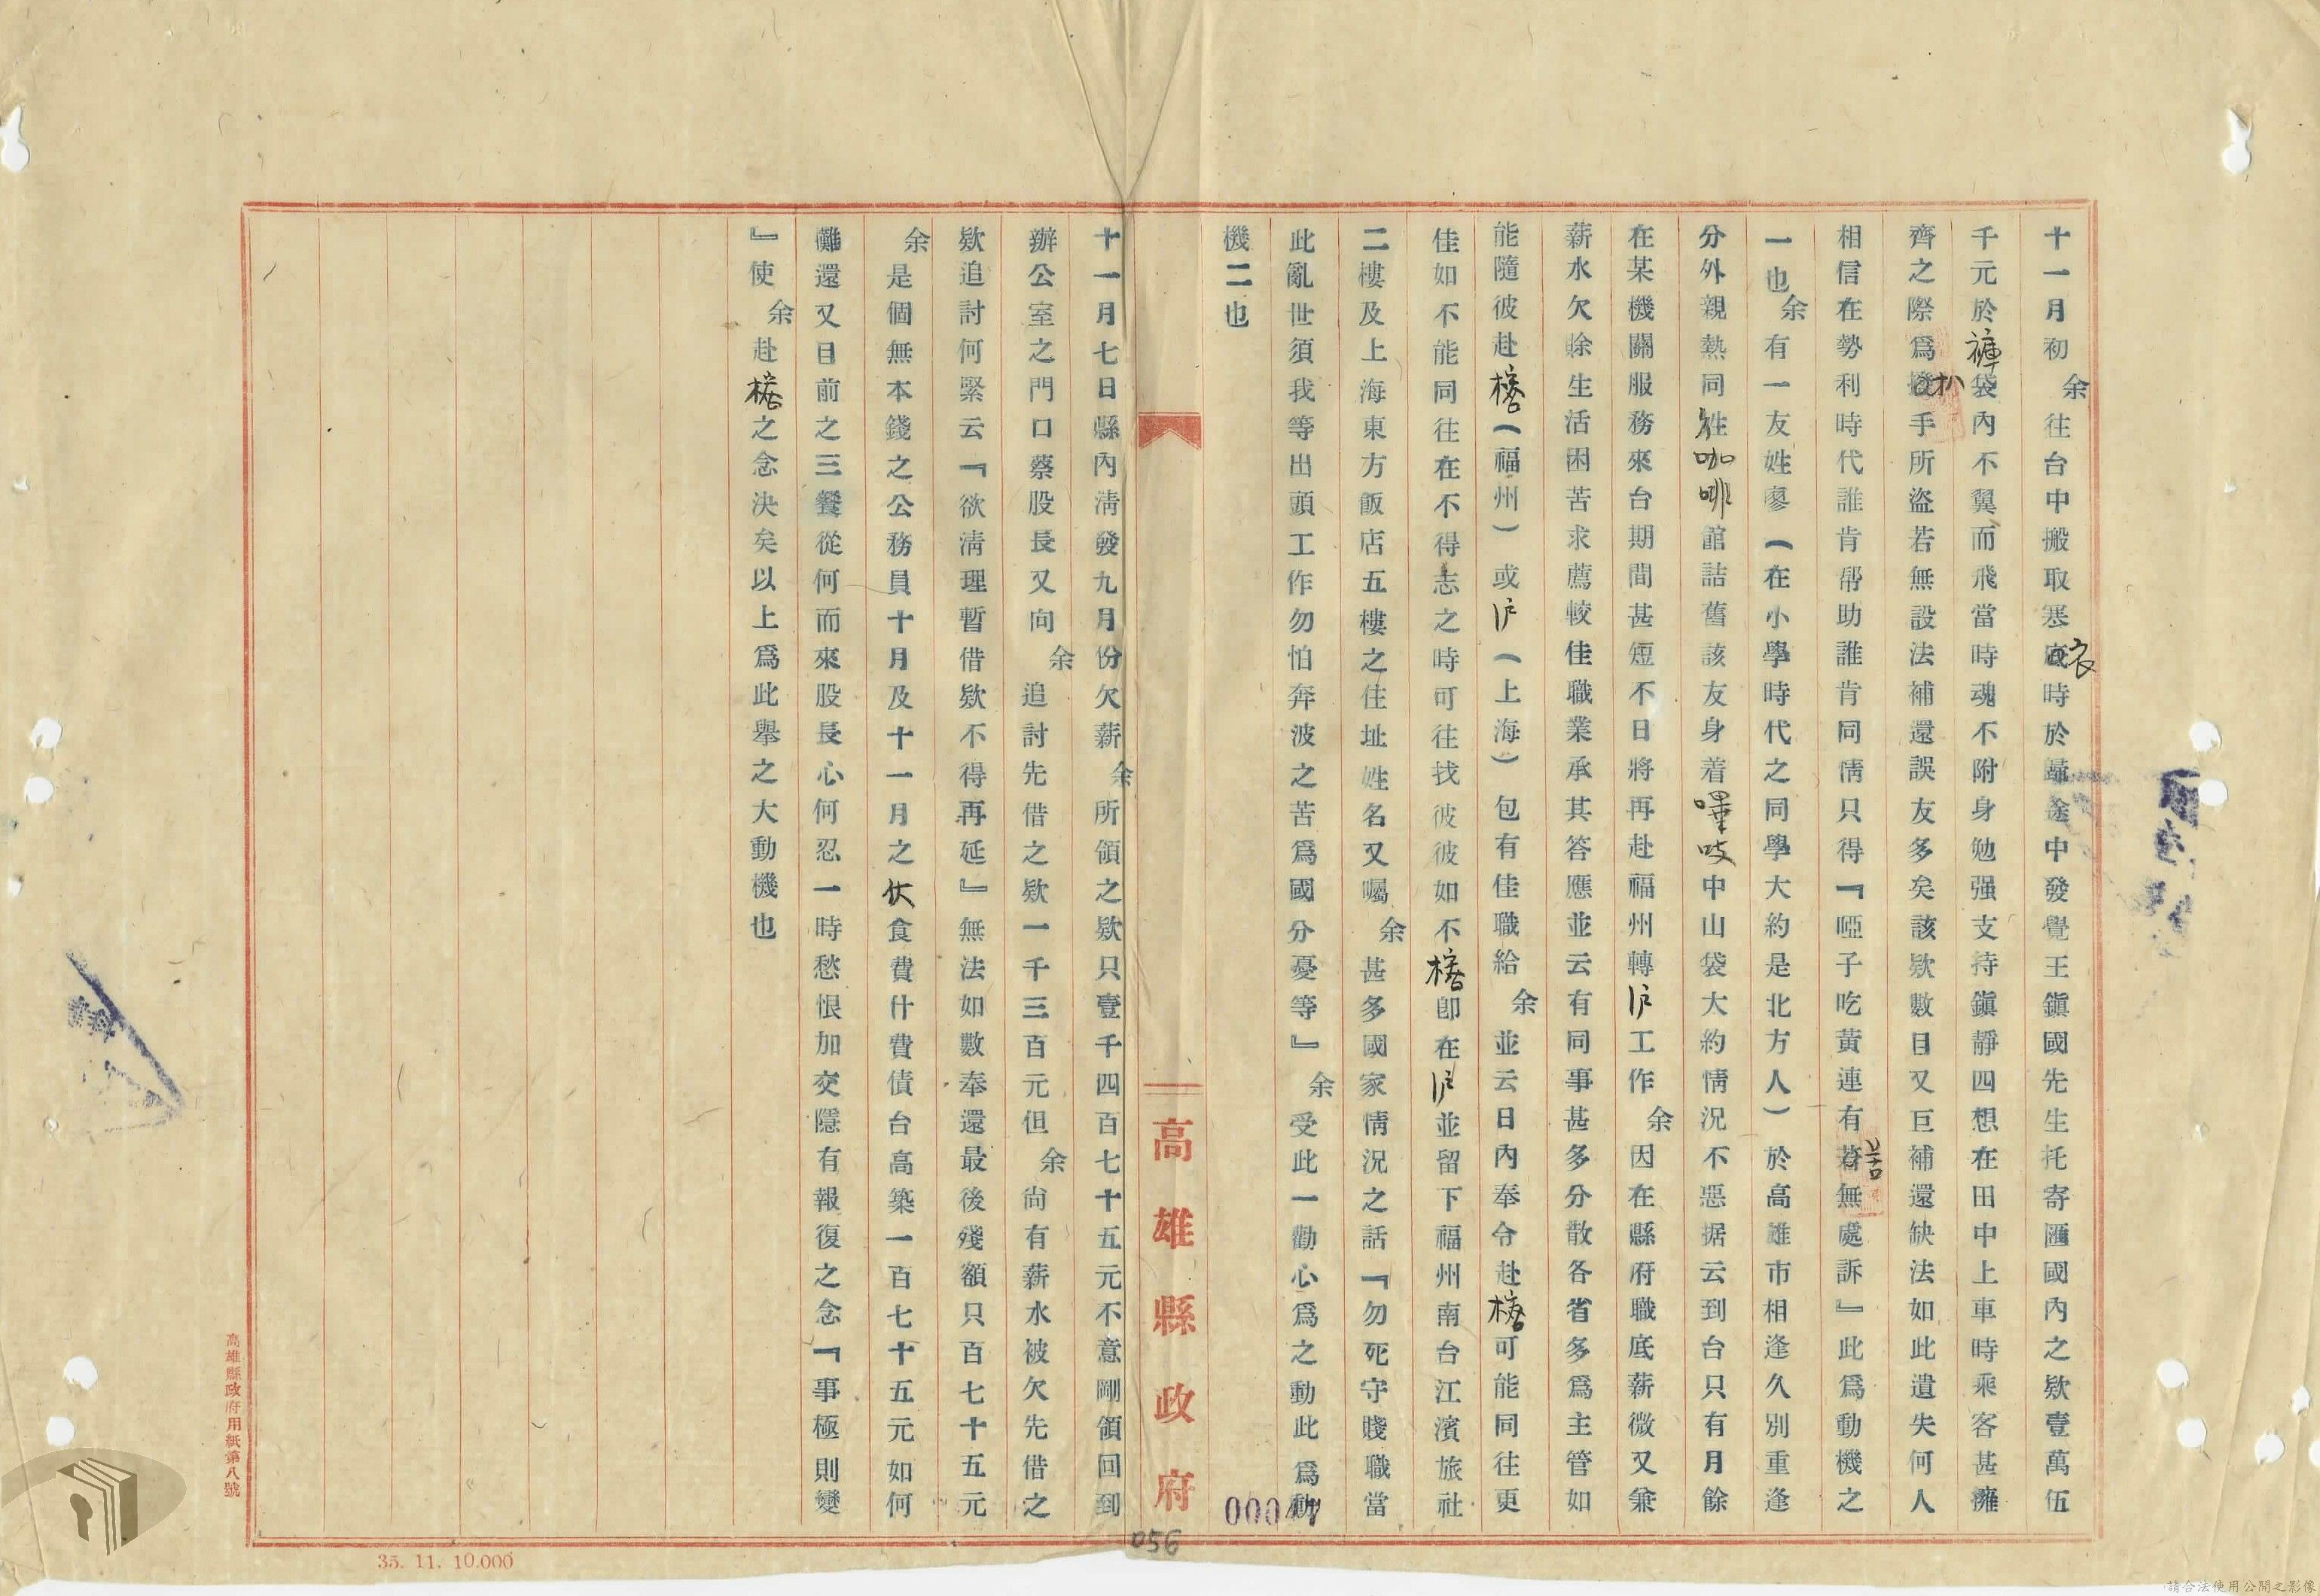 十一月初余往台中搬取寒衣時於歸途中發覺王鎭國先生托寄匯國內之欵壹萬伍
千元於褲袋內不翼而飛當時魂不附身勉强支持鎭靜四想在田中上車時乘客甚擁
齊之際爲扒手所盜若無設法補還誤友多矣該欵數目又巨補還缺法如此遺失何人
相信在勢利時代誰肯帮助誰肯同情只得『啞子吃黃連有苦無處訴』此爲動機之
一也余有一友姓廖(在小學時代之同學大約是北方人)於高雄市相逢久別重逢
分外親熱同往咖啡館詰舊該友身着嗶吱中山袋大約情況不惡据云到台只有月餘
在某機關服務來台期間甚短不日將再赴福州轉沪工作余因在縣府職底薪微又兼
薪水欠賒生活困苦求薦較佳職業承其答應並云有同事甚多分散各省多爲主管如
能隨彼赴榕(福州)或沪(上海)包有佳職給余並云日內奉令赴榕可能同往更
佳如不能同往在不得志之時可往找彼彼如不榕卽在沪並留下福州南台江濱旅社
二樓及上海東方飯店五樓之住址姓名又囑余甚多國家情況之話『勿死守賤職當
此亂世須我等出頭工作勿怕奔波之苦爲國分憂等』余受此一勸心爲之動此爲動
機二也
高雄縣政府
00047
056
十一月七日縣內清發九月份欠薪余所領之欵只壹千四百七十五元不意剛領回到
辦公室之門口蔡股長又向余追討先借之欵一千三百元但余尙有薪水被欠先借之
欵追討何緊云『欲清理暫借欵不得再延』無法如數奉還最後殘額只百七十五元
余是個無本錢之公務員十月及十一月之伙食費什費債台高築一百七十五元如何
儺還又目前之三餐從何而來股長心何忍一時愁恨加交隱有報復之念『事極則變
』使余赴榕之念決矣以上爲此舉之大動機也
高雄縣政府用紙第八號
35. 11. 10.000
請合法使用公開之影像